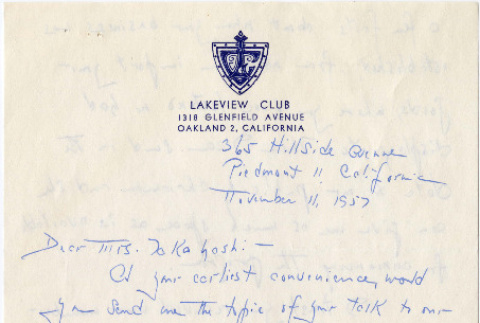 LAKEVIEW CLUB
1318 GLENFIELD AVENUE
OAKLAND 2, CALIFORNIA
365 Hillside Avenue
Piedmont 11 California
November 11, 1957
Dear Mrs. Takayoshi: -
At your earliest convenience, would
you send me the topic of your talk to our